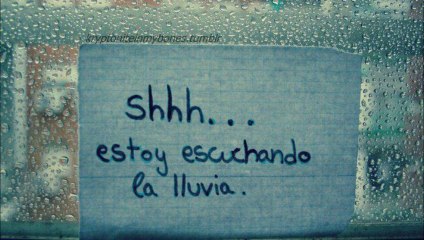 kryptoniteinmybones.tumblr
shhh...
estoy escuchando
la lluvia.